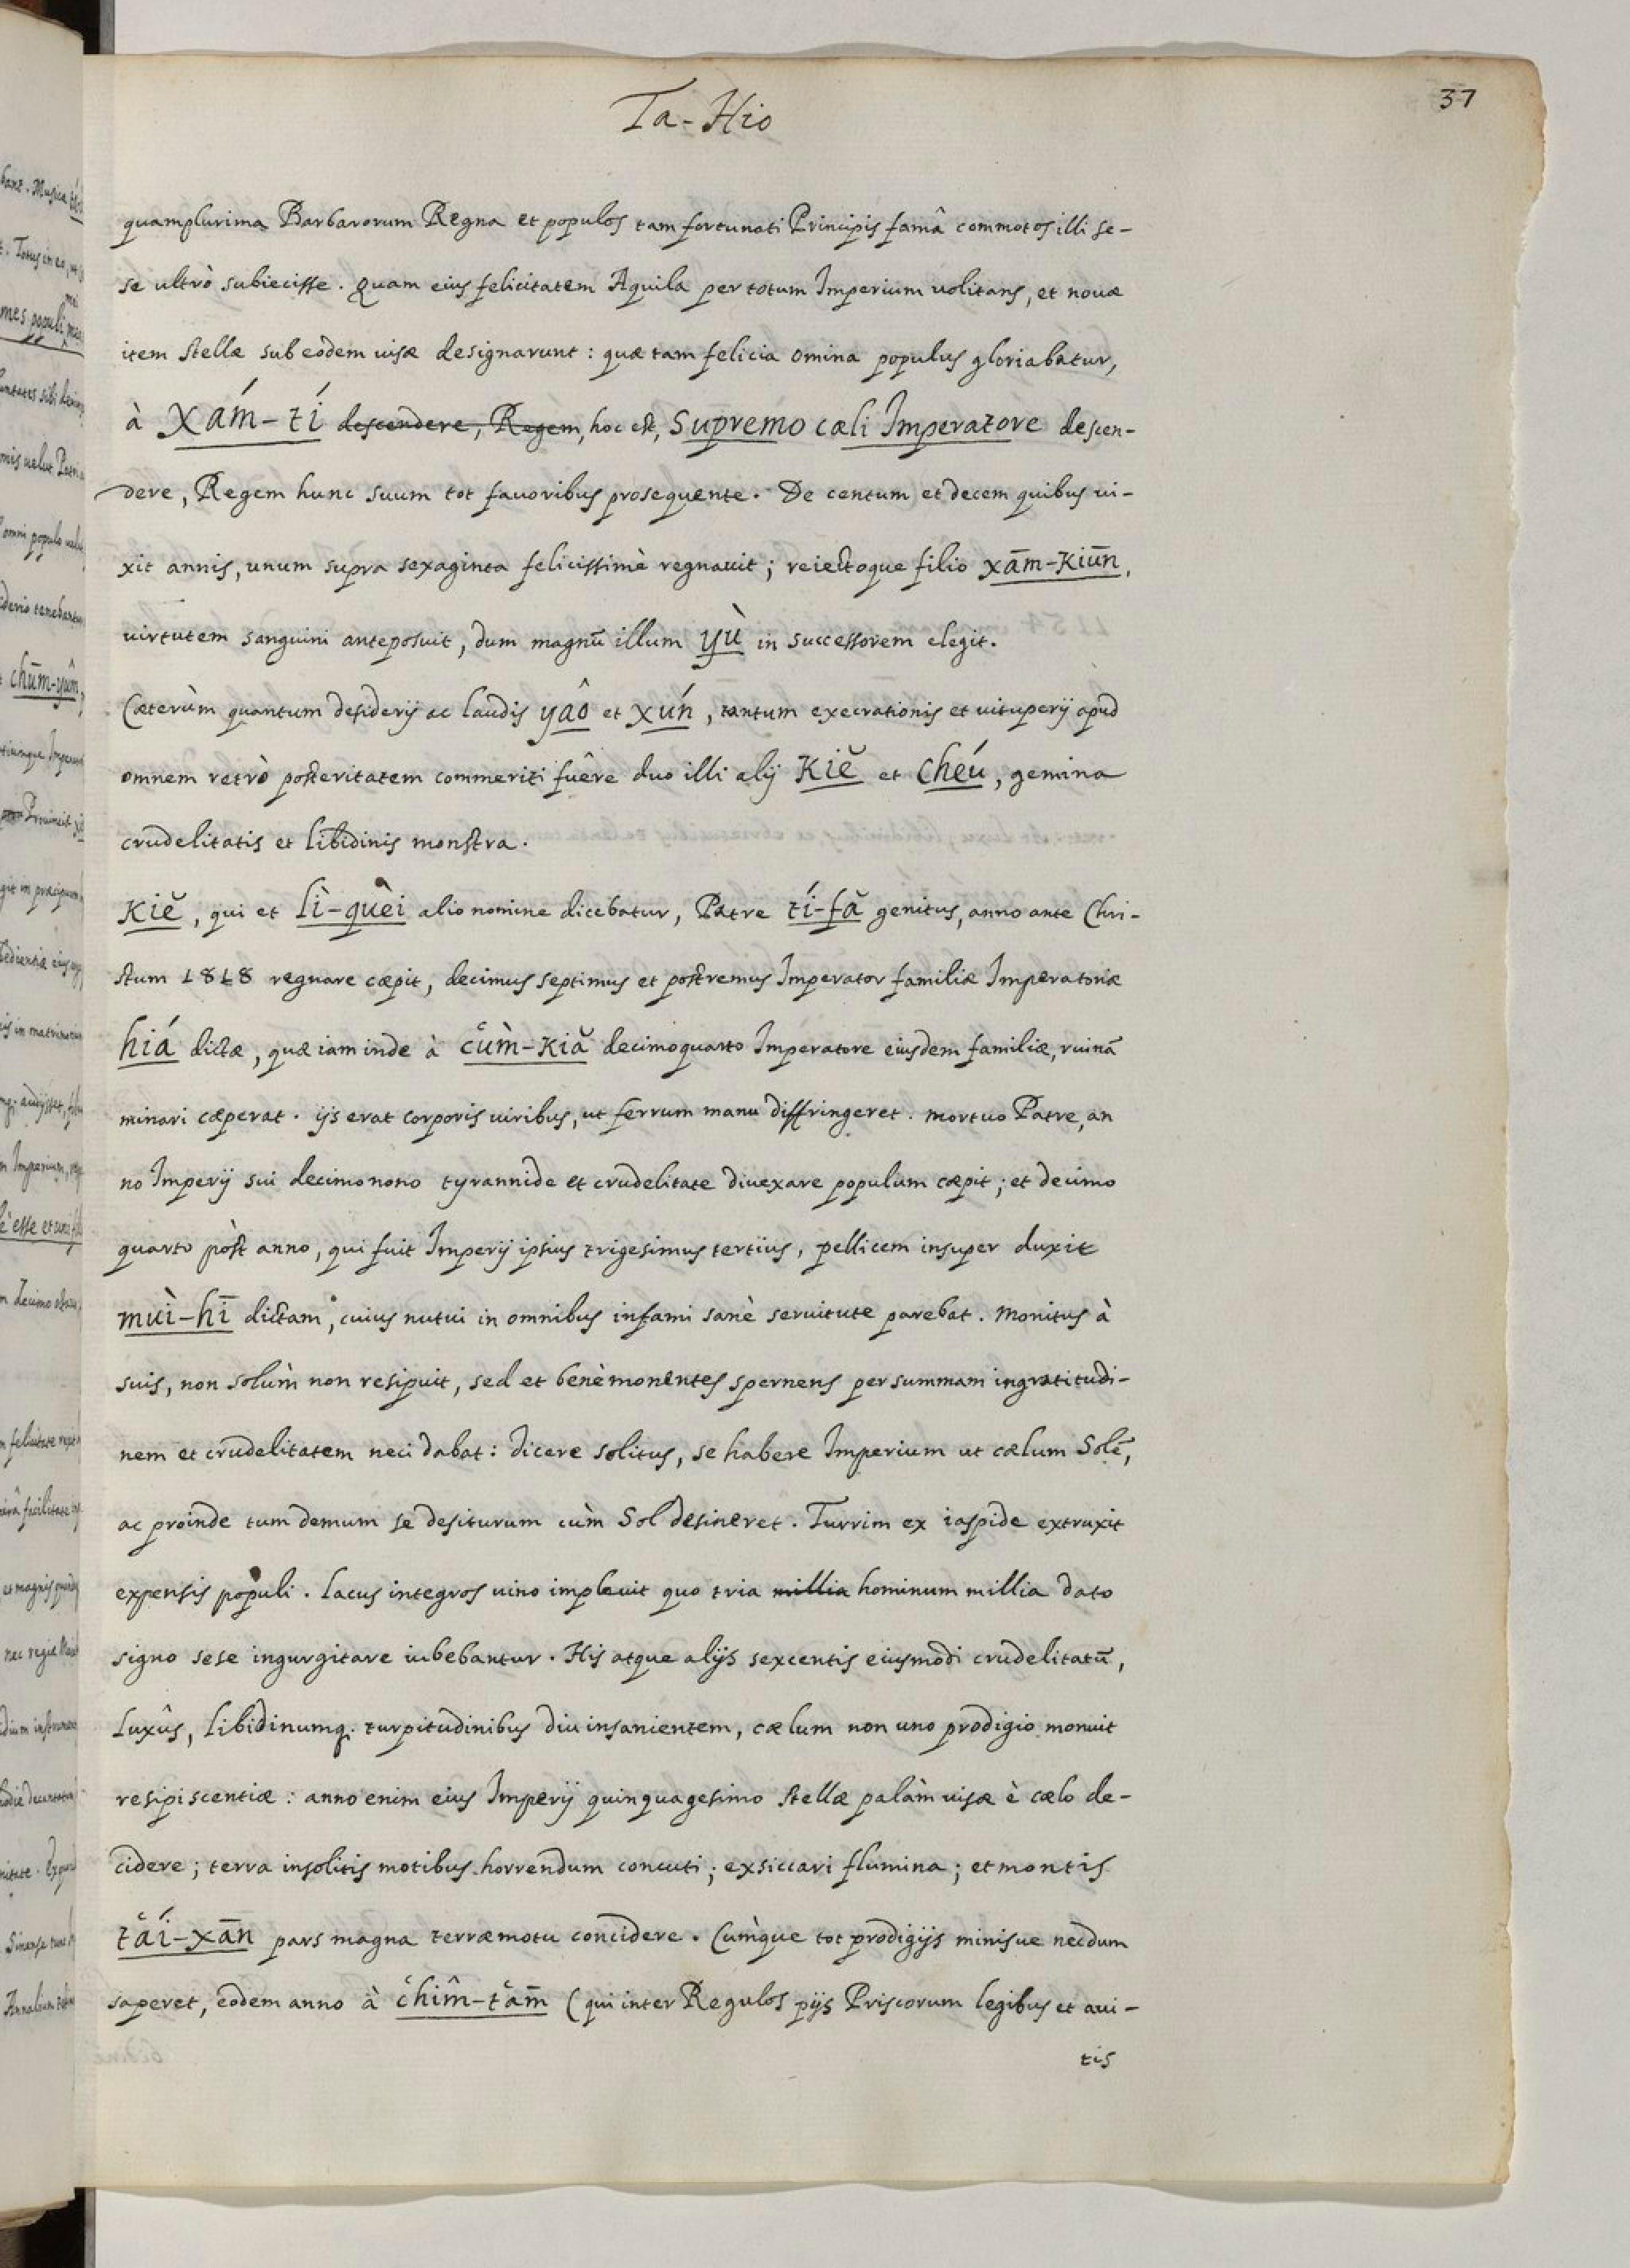 Ta-Hio
37
quamplurima Barbarorum Regna et populos tam fortunati Principis famâ commotos illi se-
se ultrò subiecisse. Quam eius felicitatem Aquila per totum Imperium volitans, et novæ
item stellæ sub eodem visæ designarunt: quæ tam felicia omina populus gloriabatur,
à Xám-tí descendere, Regem, hoc est, Supremo cæli Imperatore descen-
dere, Regem hunc suum tot favoribus prosequente. De centum et decem quibus vi-
xit annis, unum supra sexaginta felicissimè regnavit; reiectoque filio xām-Kiūn,
virtutem sanguini anteposuit, dum magnū illum yù in successorem elegit.
Cæterùm quantum desiderij ac laudis yâo et xún, tantum execrationis et vituperij apud
omnem retrò posteritatem commeriti fuêre duo illi alij Kiĕ et Chéu, gemina
crudelitatis et libidinis monstra.
Kiĕ, qui et lì-quèi alio nomine dicebatur, Patre tí-fă genitus, anno ante Chri-
stum 1818 regnare cæpit, decimus septimus et postremus Imperator familiæ Imperatoriæ
hiá dictæ, quæ iam inde à cùm-Kiă decimoquarto Imperatore eiusdem familiæ, ruinā
minari cæperat. ijs erat corporis viribus, ut ferrum manu diffringeret. mortuo Patre, an
no Imperij sui decimonono tyrannide et crudelitate divexare populum cæpit; et decimo
quarto pòst anno, qui fuit Imperij ipsius trigesimus tertius, pellicem insuper duxit
mùi-hī dictam, cuius nutui in omnibus infami sanè servitute parebat. Monitus à
suis, non solùm non resipuit, sed et benè monentes spernens per summam ingratitudi-
nem et crudelitatem neci dabat: dicere solitus, se habere Imperium ut cælum Solē,
ac proinde tum demum se desiturum cùm Sol desineret. Turrim ex iaspide extruxit
expensis populi. Lacus integros vino implevit quo tria millia hominum millia dato
signo sese ingurgitare iubebantur. His atque alijs sexcentis eiusmodi crudelitatū,
Luxûs, libidinumq. turpitudinibus diu insanientem, cælum non uno prodigio monuit
resipiscentiæ: anno enim eius Imperij quinquagesimo stellæ palàm visæ è cælo de-
cidere; terra insolitis motibus horrendum concuti; exsiccari flumina; et montis
tái-xān pars magna terræmotu concidere. Cùmque tot prodigijs minisve necdum
saperet, eodem anno à chîm-tām (qui inter Regulos pijs Priscorum legibus et avi-
tis